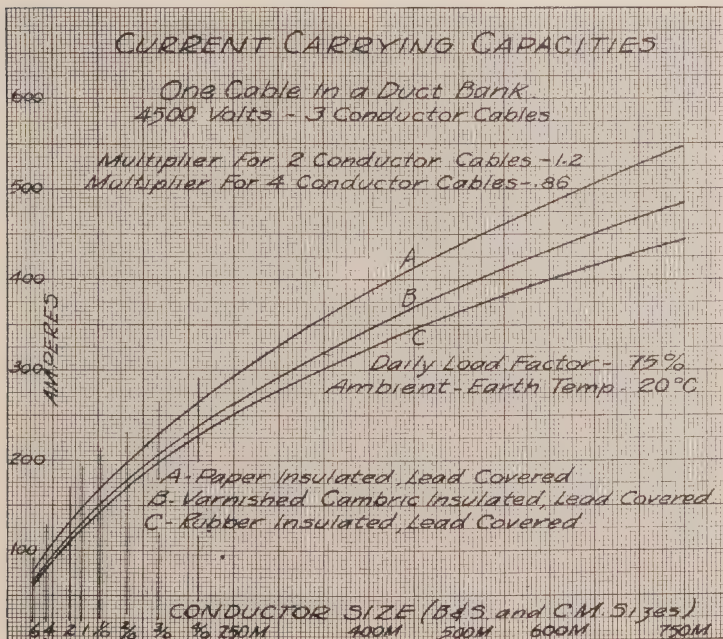 CURRENT CARRYING CAPACITIES
One Cable In a Duct Bank
4500 Volts - 3 Conductor Cables
Multiplier For 2 Conductor Cables -1.2
Multiplier For 4 Conductor Cables-.86
600
500
400
300
200
100
AMPERES
A
B
C
Daily Load Factor - 75%
Ambient - Earth Temp - 20°C
A-Paper Insulated, Lead Covered
B-Varnished Cambric Insulated, Lead Covered
C-Rubber Insulated, Lead Covered
CONDUCTOR SIZE (B&S and C.M. Sizes)
6 4 2 1 1/0 2/0 3/0 4/0 250M 400M 500M 600M 750M